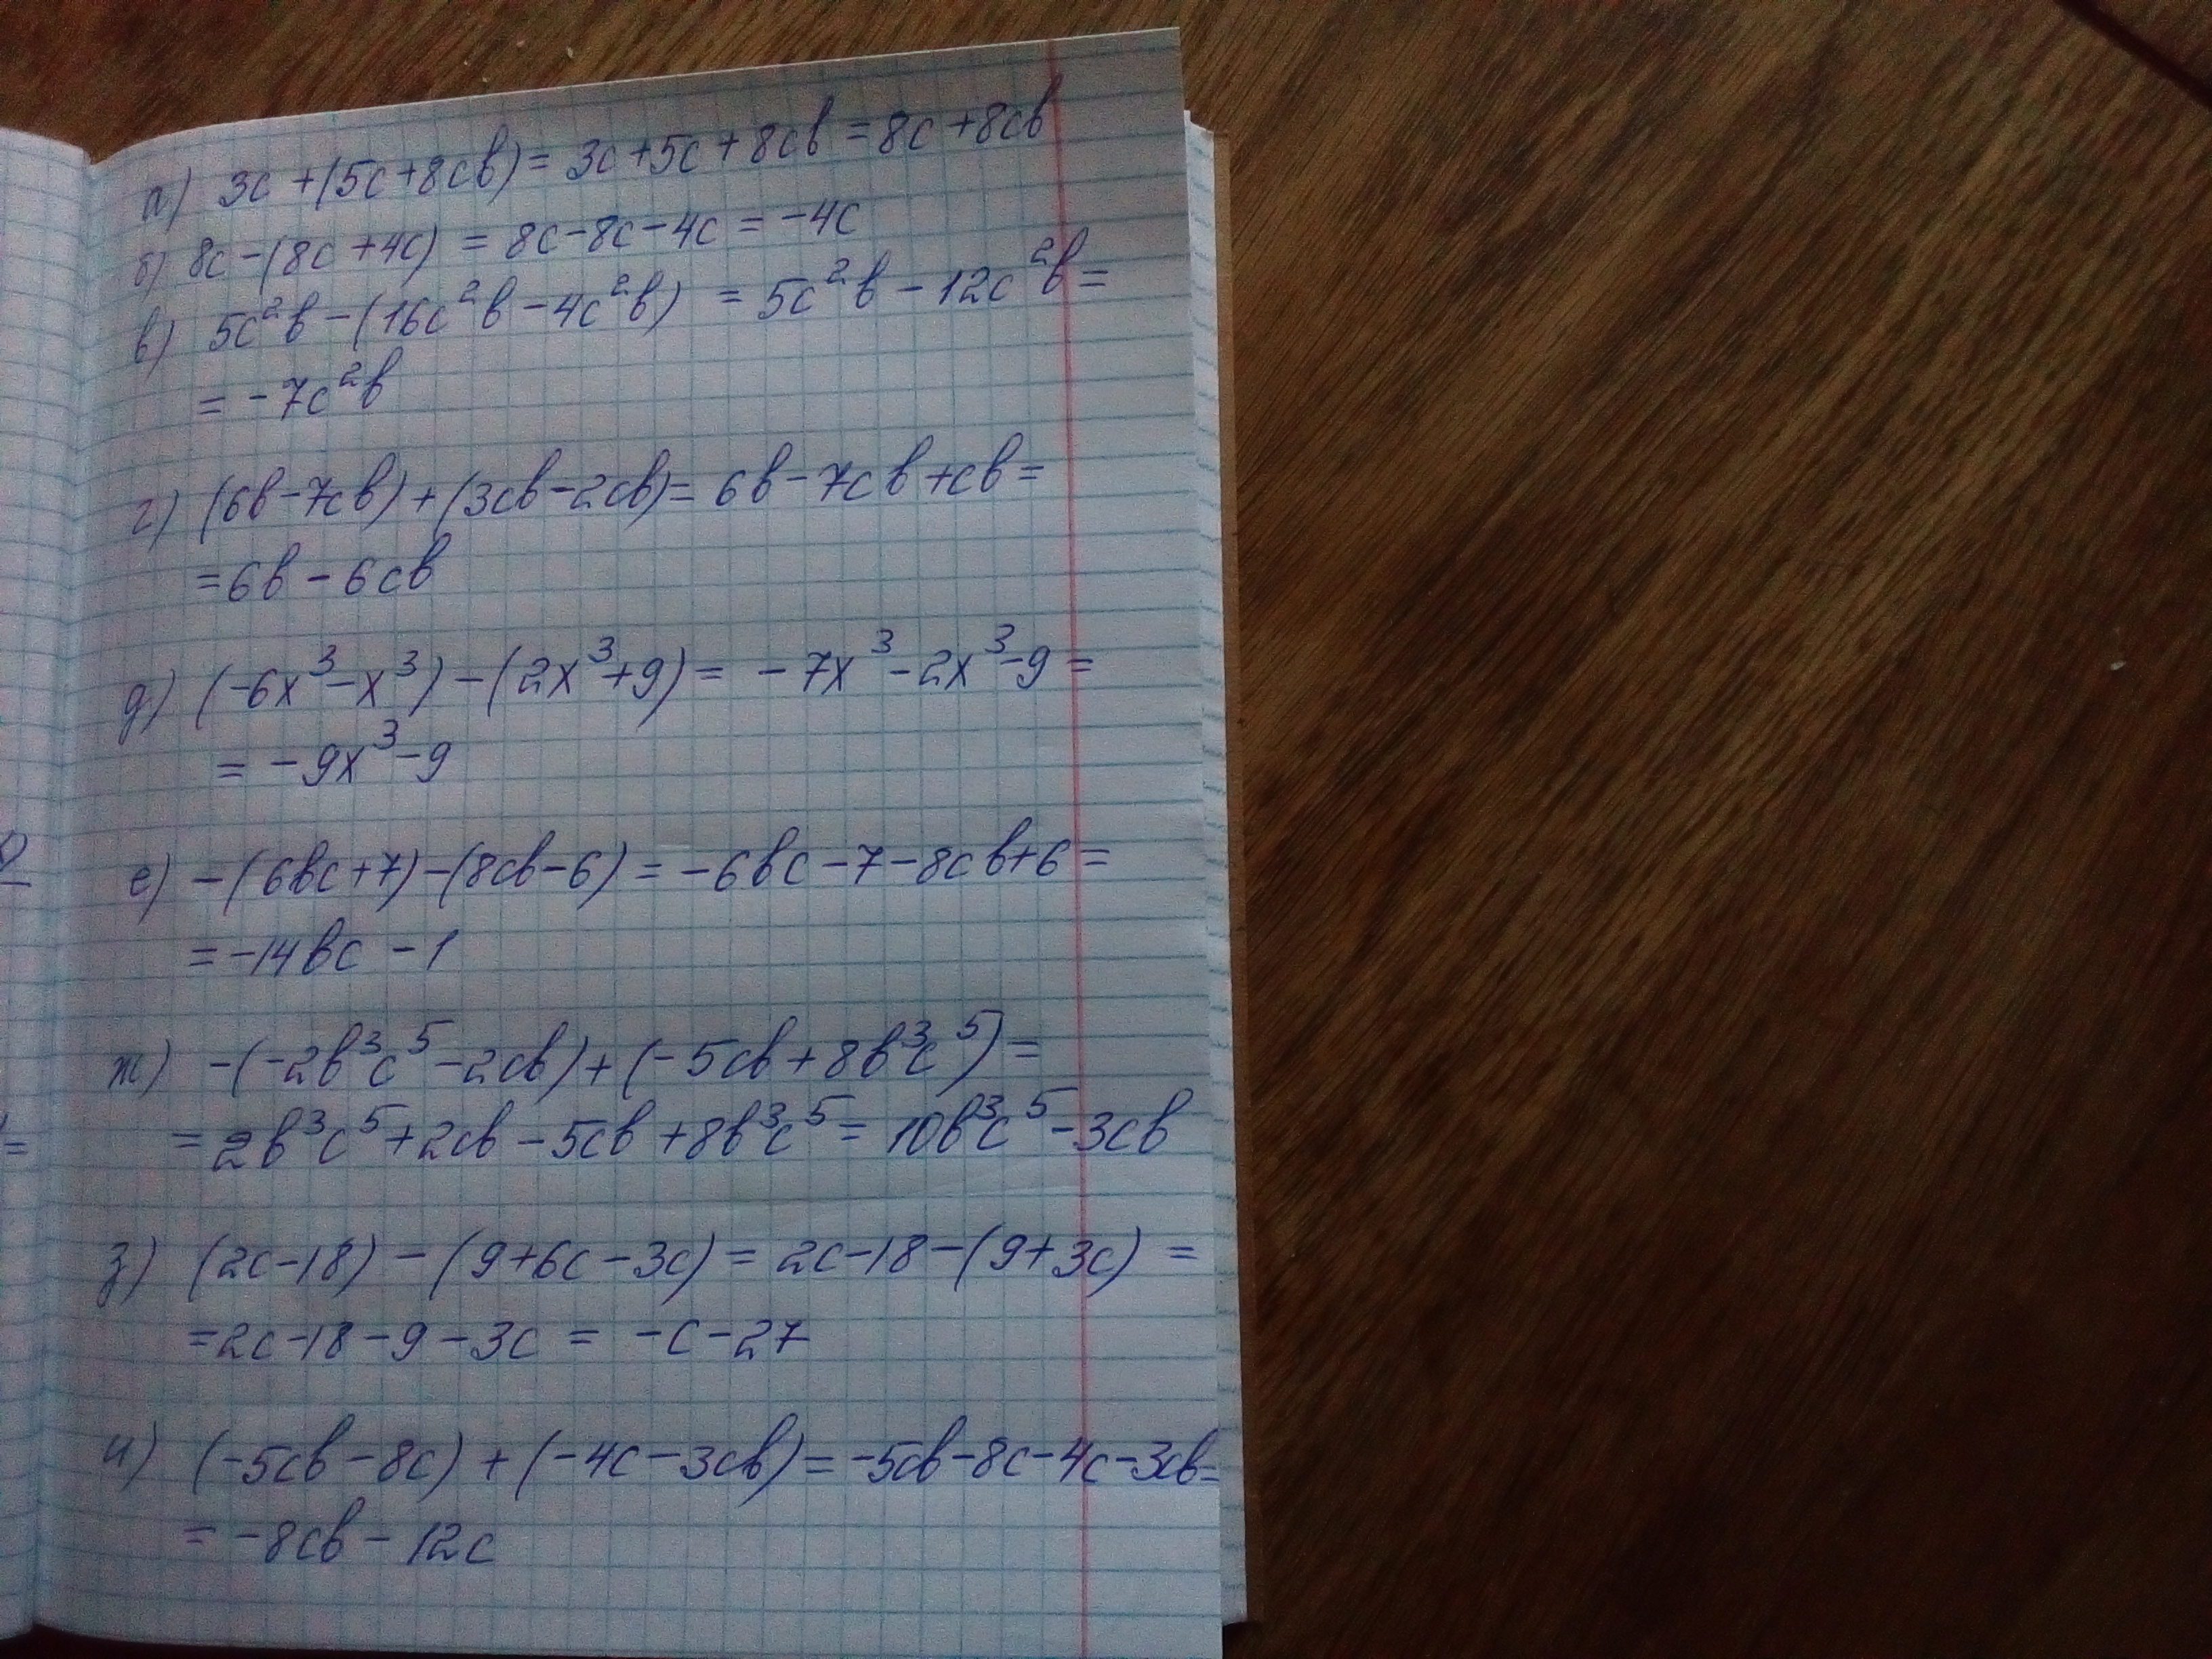 а) 3c + (5c + 8cb) = 3c + 5c + 8cb = 8c + 8cb
б) 8c - (8c + 4c) = 8c - 8c - 4c = -4c
в) 5c²b - (16c²b - 4c²b) = 5c²b - 12c²b =
= -7c²b
г) (6b - 7cb) + (3cb - 2cb) = 6b - 7cb + cb =
= 6b - 6cb
д) (-6x³ - x³) - (2x³ + 9) = -7x³ - 2x³ - 9 =
= -9x³ - 9
е) -(6bc + 7) - (8cb - 6) = -6bc - 7 - 8cb + 6 =
= -14bc - 1
ж) -(-2b³c⁵ - 2cb) + (-5cb + 8b³c⁵) =
= 2b³c⁵ + 2cb - 5cb + 8b³c⁵ = 10b³c⁵ - 3cb
з) (2c - 18) - (9 + 6c - 3c) = 2c - 18 - (9 + 3c) =
= 2c - 18 - 9 - 3c = -c - 27
и) (-5cb - 8c) + (-4c - 3cb) = -5cb - 8c - 4c - 3cb =
= -8cb - 12c